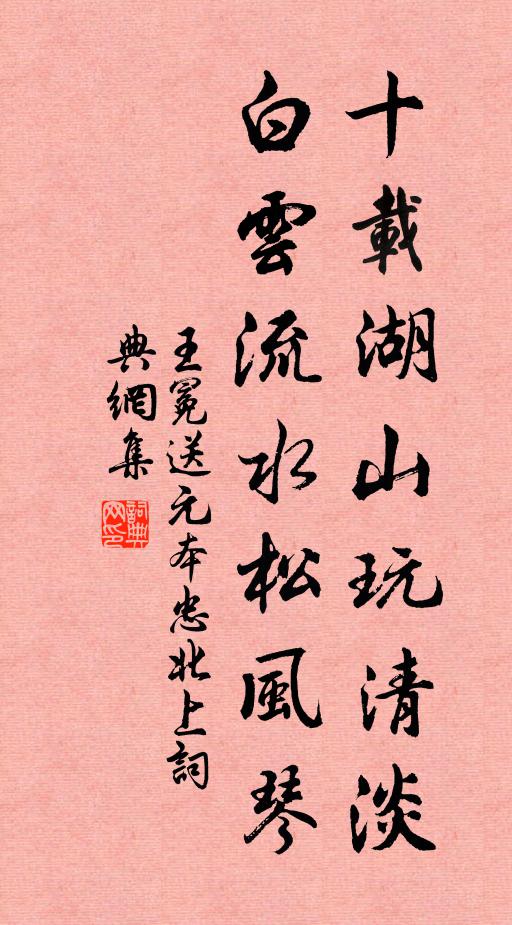 十載湖山玩清淡
白雲流水松風琴
王冕送元本忠北上詞
典網集
詞典網印